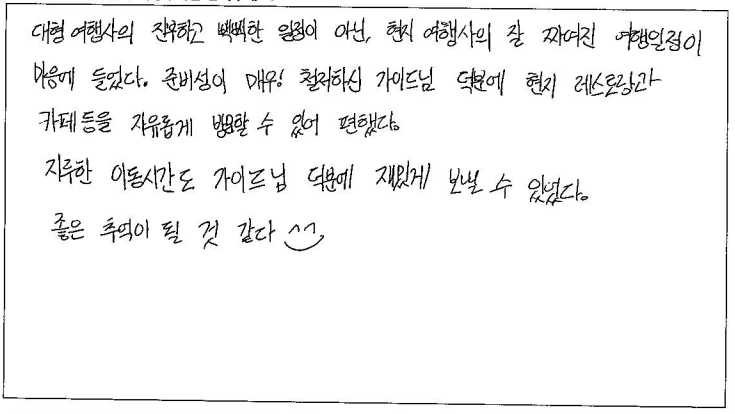 대형 여행사의 진부하고 빽빽한 일정이 아닌, 현지 여행사의 잘 짜여진 여행일정이
마음에 들었다. 준비성이 매우! 철저하신 가이드님 덕분에 현지 레스토랑과
카페 등을 자유롭게 방문할 수 있어 편했다.
지루한 이동시간도 가이드님 덕분에 재밌게 보낼 수 있었다.
좋은 추억이 될 것 같다 ^^